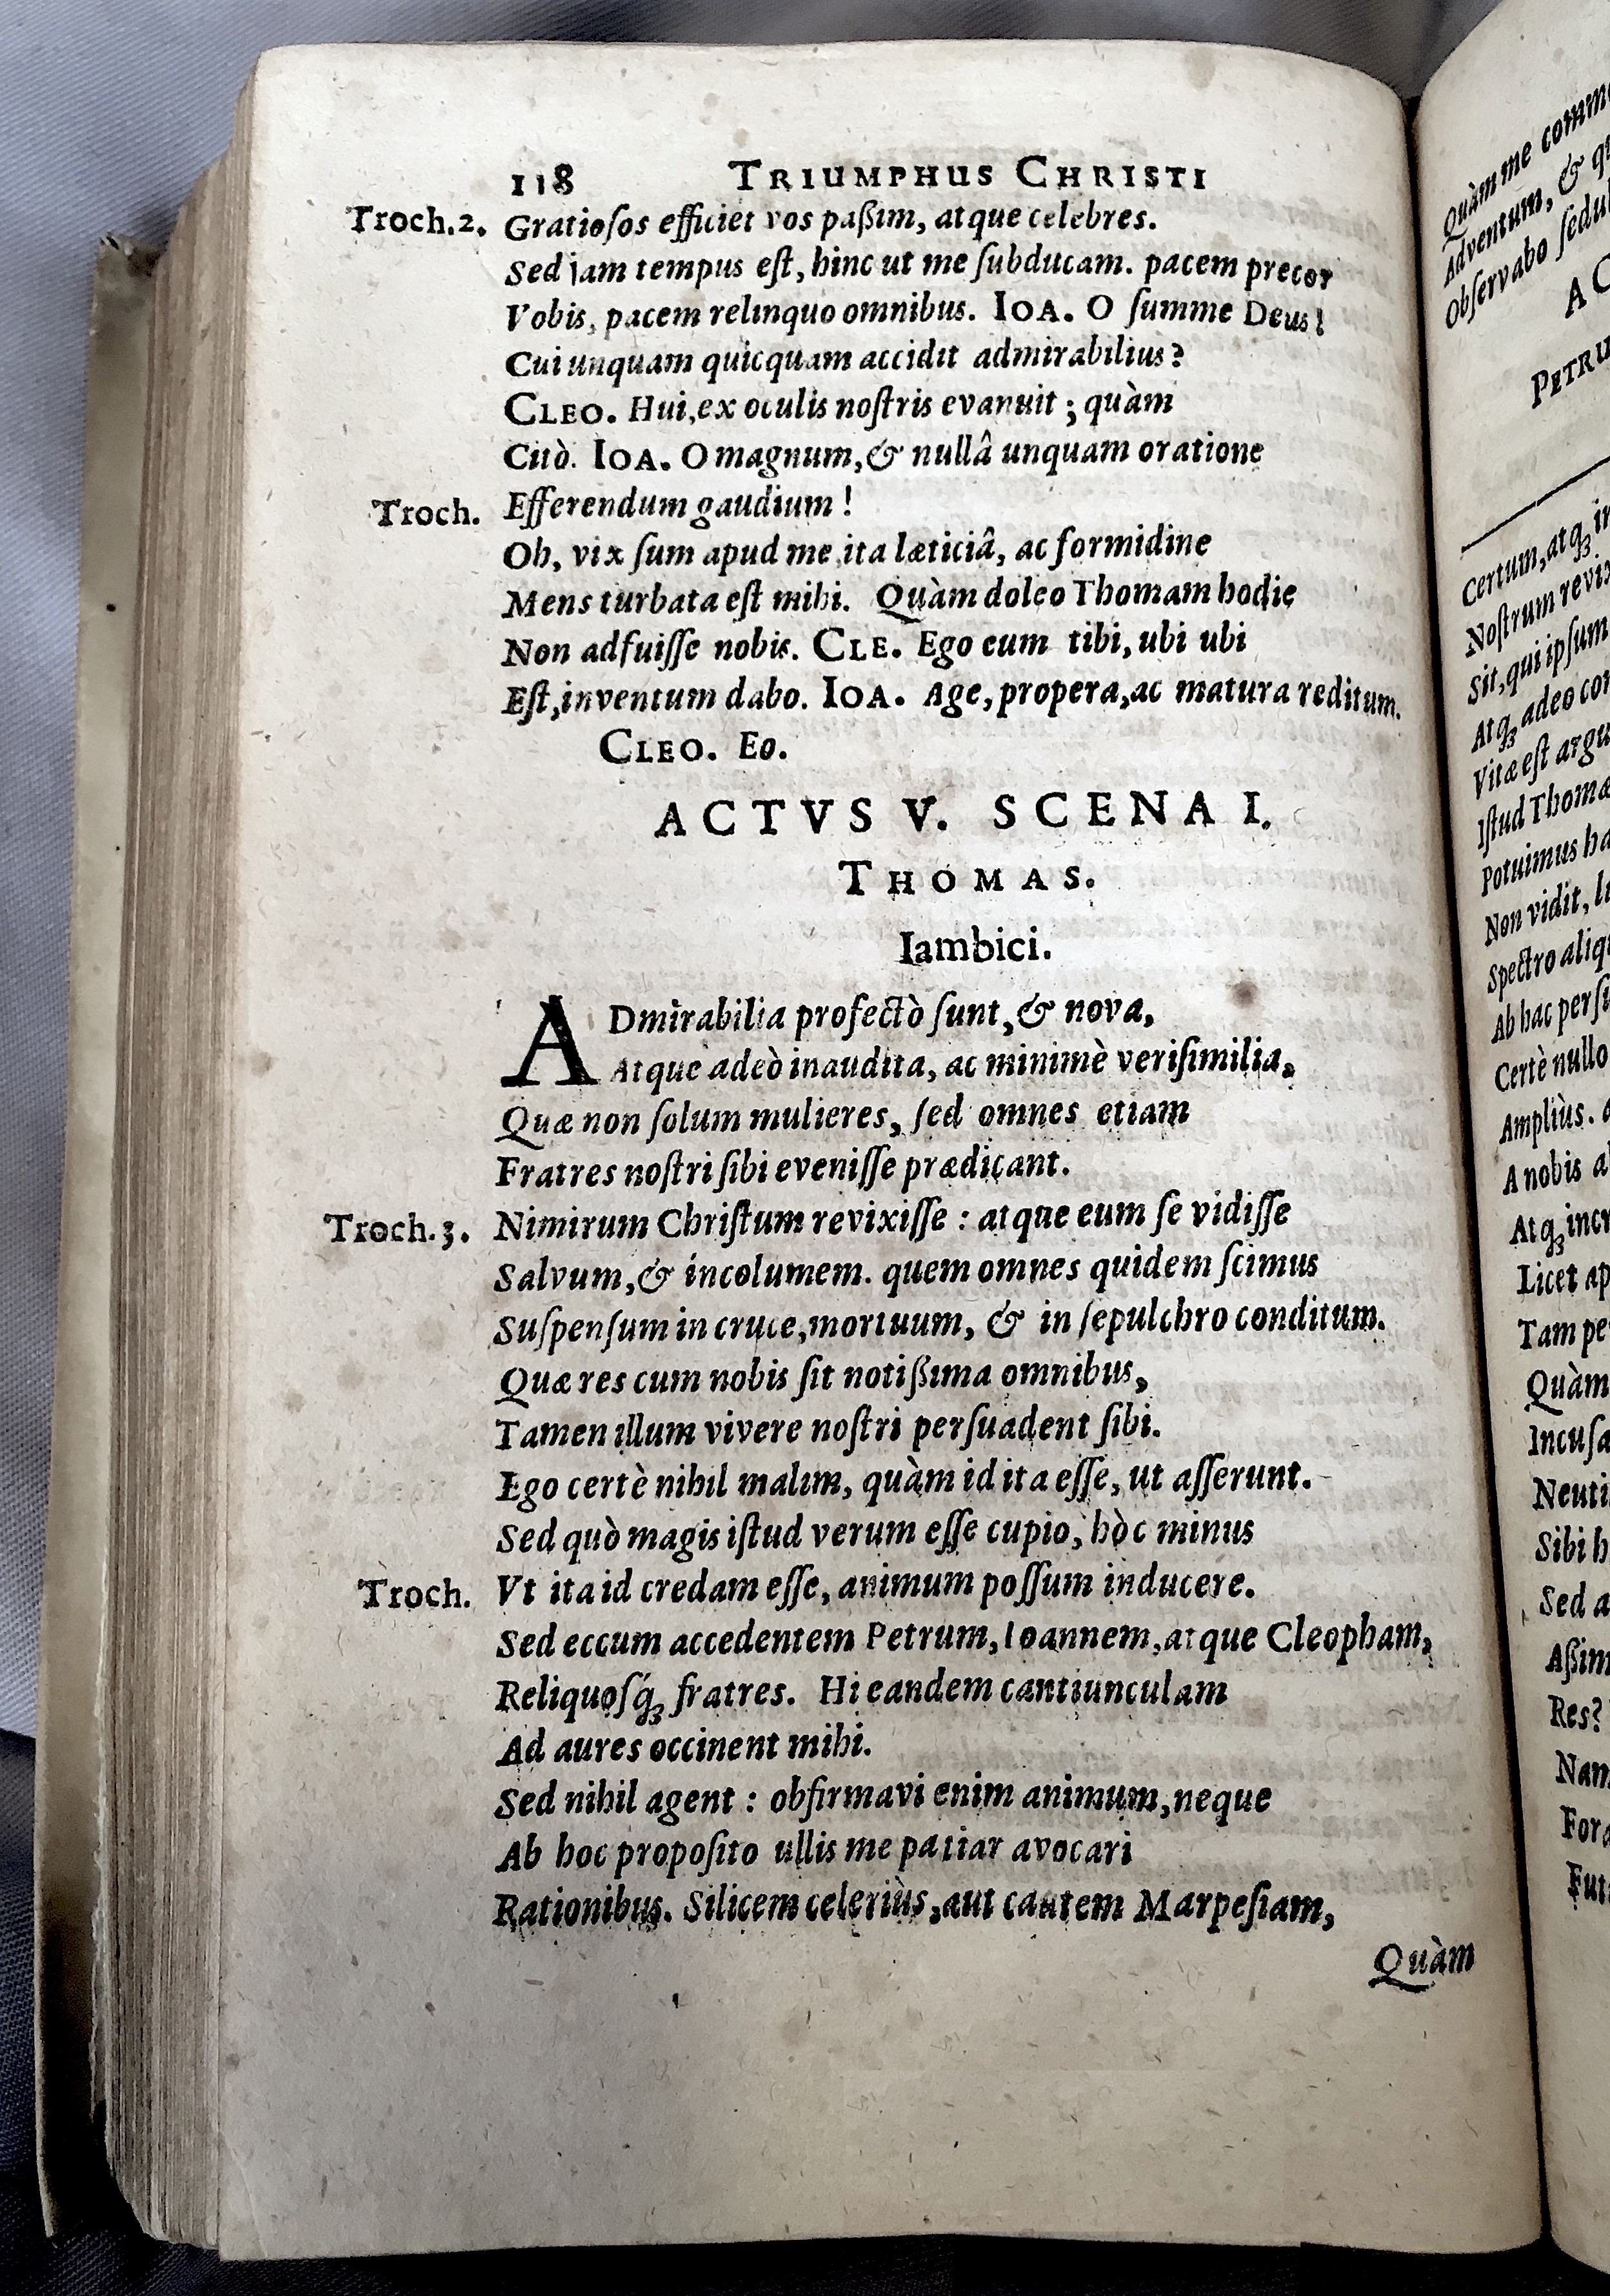 118 TRIUMPHUS CHRISTI
Troch.2. Gratioſos efficiet vos paßim, atque celebres.
Sed jam tempus eſt, hinc ut me ſubducam. pacem precor
Vobis, pacem relinquo omnibus. IOA. O ſumme Deus!
Cui unquam quicquam accidit admirabilius?
CLEO. Hui, ex oculis noſtris evanuit; quàm
Citò. IOA. O magnum, & nullâ unquam oratione
Troch. Efferendum gaudium!
Oh, vix ſum apud me, ita læticiâ, ac formidine
Mens turbata eſt mihi. Quàm doleo Thomam hodie
Non adfuiſſe nobis. CLE. Ego eum tibi, ubi ubi
Eſt, inventum dabo. IOA. Age, propera, ac matura reditum.
CLEO. Eo.
ACTVS V. SCENA I.
THOMAS.
Iambici.
ADmirabilia profectò ſunt, & nova,
Atque adeò inaudita, ac minimè veriſimilia,
Quæ non ſolum mulieres, ſed omnes etiam
Fratres noſtri ſibi eveniſſe prædicant.
Troch.3. Nimirum Chriſtum revixiſſe: atque eum ſe vidiſſe
Salvum, & incolumem. quem omnes quidem ſcimus
Suſpenſum in cruce, mortuum, & in ſepulchro conditum.
Quæ res cum nobis ſit notißima omnibus,
Tamen illum vivere noſtri perſuadent ſibi.
Ego certè nihil malim, quàm id ita eſſe, ut aſſerunt.
Sed quò magis iſtud verum eſſe cupio, hòc minus
Troch. Vt ita id credam eſſe, animum poſſum inducere.
Sed eccum accedentem Petrum, Ioannem, atque Cleopham,
Reliquoſq́ꝫ fratres. Hi eandem cantiunculam
Ad aures occinent mihi.
Sed nihil agent: obfirmavi enim animum, neque
Ab hoc propoſito ullis me patiar avocari
Rationibus. Silicem celeriùs, aut cautem Marpeſiam,
Quàm
Quàm me
Adventum, &
Obſervabo
Certum, atqꝫ
Noſtrum
Sit, qui ipſum
Atqꝫ adeo
Vitæ eſt
Iſtud
Potuimus
Non vidit,
Spectro
Ab hac
Certè nullo
Ampliùs.
A nobis
Atqꝫ
Licet
Tam
Quàm
Sibi
Sed
Res?